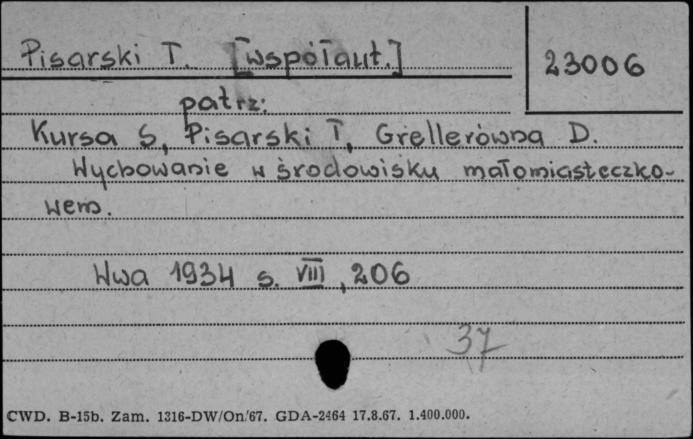 Pisarski T. [współaut.]
23006
patrz:
Kursa S, Pisarski T, Grellerówna D.
Wychowanie w środowisku małomiasteczko-
wem.
Wwa 1934 s. VIII, 206
37
CWD. B-15b. Zam. 1316-DW/On/67. GDA-2464 17.8.67. 1.400.000.